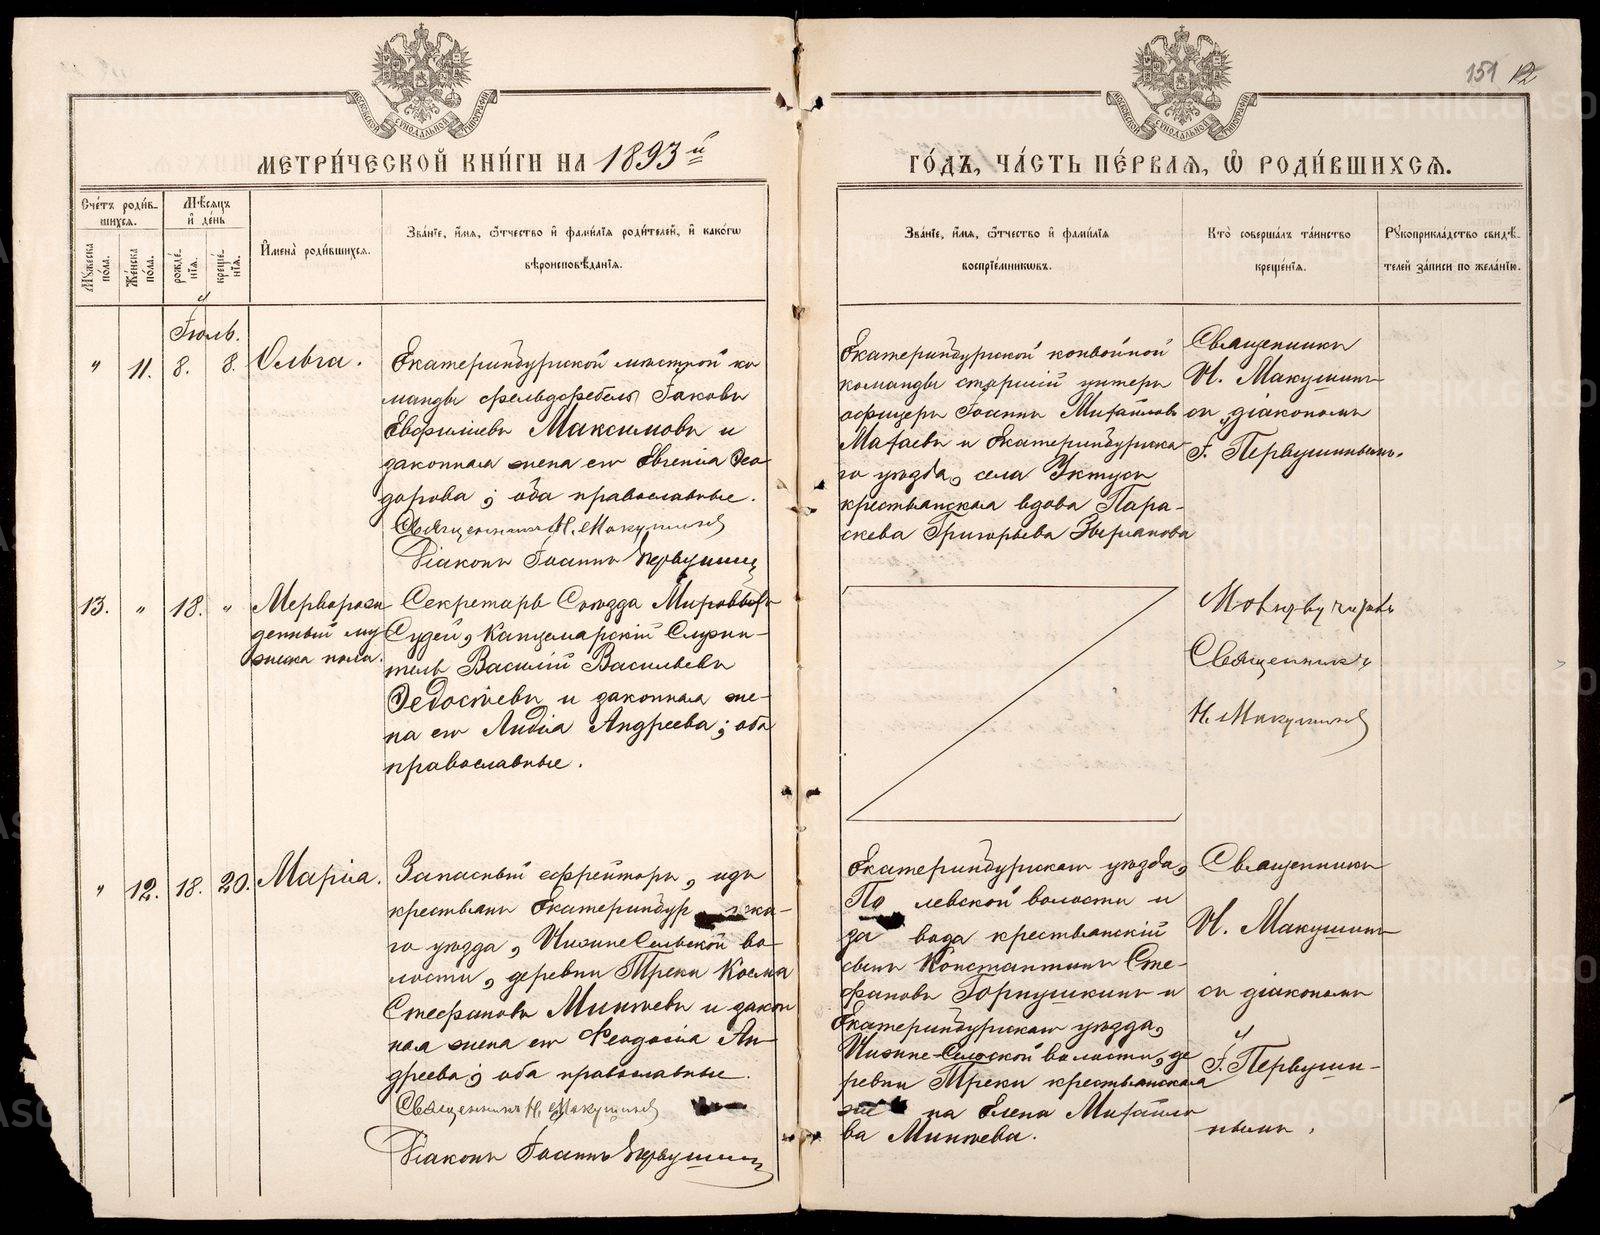 151 12
МОСКОВСКОЙ СѴНОДАЛЬНОЙ ТИПОГРАФІИ
МОСКОВСКОЙ СѴНОДАЛЬНОЙ ТИПОГРАФІИ
МЕТРИ́ЧЕСКОЙ КНИ́ГИ НА 1893й
ГО́ДЪ, ЧА́СТЬ ПЕ́РВАЯ, Ѽ РОДИ́ВШИХСЯ.
Сче́тъ роди́в-
шихся.
Мꙋжеска по́ла.
Же́нска по́ла.
Мѣ́сяцъ
и҆ де́нь
рожде́-
нїя.
креще́-
нїя.
И҆мена̀ роди́вшихся.
Зва́нїе, и҆́мя, ѻ҆́тчество и҆ фами́лїя роди́телей, и҆ како́гѡ
вѣроисповѣ́данїя.
Зва́нїе, и҆́мя, ѻ҆́тчество и҆ фами́лїя
воспрїе́мникѡвъ.
Кто̀ соверша́лъ та́инство
креще́нїя.
Рꙋкоприкла́дство свидѣ́-
телей за́писи по жела́нїю.
Іюль.
" 11. 8. 8. Ольга.
Екатеринбургской мѣстной ко
манды фельдфебель Іаковъ
Евфиміевъ Максимовъ и
законная жена его Евгенія Ѳео
дорова; оба православные.
Священникъ Н. Макушинъ
Діаконъ Іоаннъ Первушинъ
Екатеринбургской конвойной
команды старшій унтеръ
офицеръ Іоаннъ Михайловъ
Махаевъ и Екатеринбургска
го уѣзда, села Уктусъ
крестьянская вдова Пара-
скева Григорьева Звѣрианова
Священникъ
Н. Макушинъ
съ діакономъ
І. Первушинымъ.
13. " 18. "
Мерворож
денный му
жеска пола.
Секретарь Съѣзда Мировыхъ
Судей, Канцелярскій Служи-
тель Василій Васильевъ
Ѳедосѣевъ и законная же-
на его Лидія Андреева; оба
православные.
Священникъ
Н. Макушинъ
" 12. 18. 20. Марія.
Запасный ефрейторъ, изъ
крестьянъ Екатеринбургска-
го уѣзда, Нижне Сельской во-
лости, деревни Треки Косма
Стефановъ Минѣевъ и закон
ная жена его Ѳеодосія Ан-
дреева; оба православные.
Священникъ Н. Макушинъ
Діаконъ Іоаннъ Первушинъ
Екатеринбургскаго уѣзда,
По левской волости и
за вода крестьянскій
сынъ Константинъ Сте-
фановъ Горнушкинъ и
Екатеринбургскаго уѣзда,
Нижне-Сельской волости, де
ревни Треки крестьянская
же на Елена Михайло
ва Минѣева.
Священникъ
Н. Макушинъ
съ діакономъ
І. Первуши-
нымъ.
METRIKI.GASO-URAL.RU